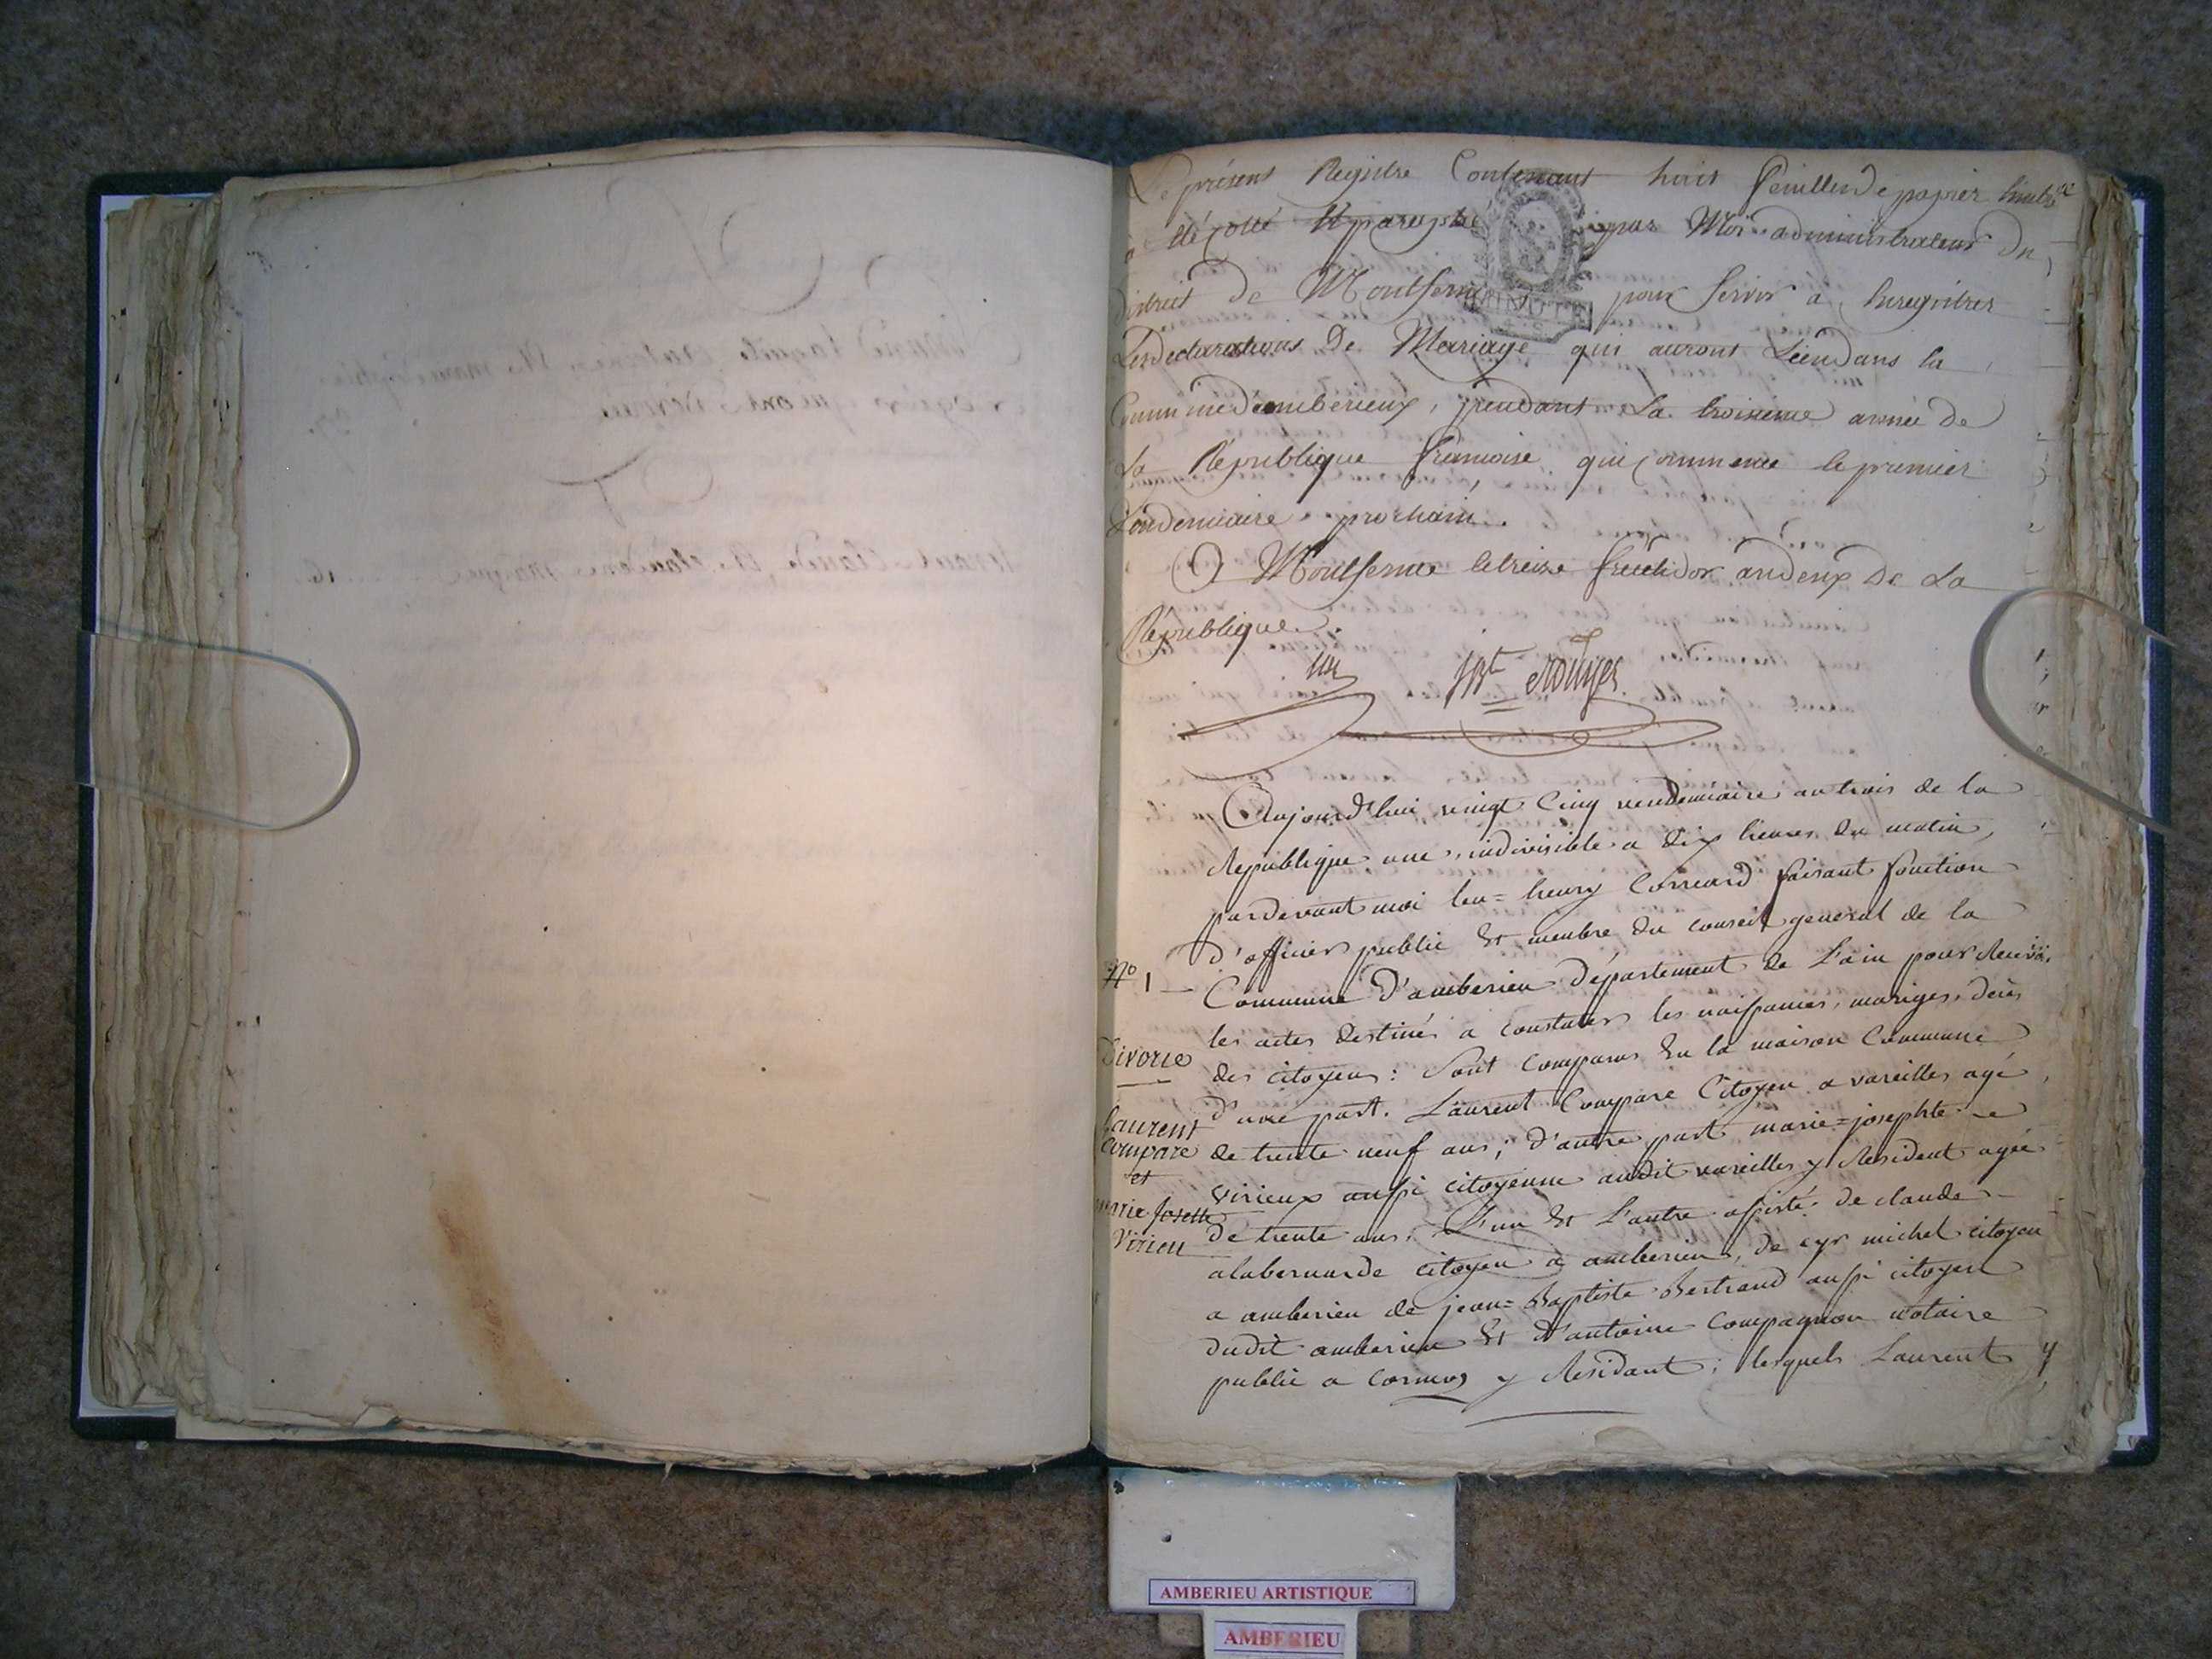 Le présent Registre Contenant huit feuilles de papier timbré
a été cotté et paraphé par Moi administrateur du
district de Montferme pour servir à Enregistrer
Les declarations de Mariage qui auront Lieu dans la
Commune d'amberieux, pendant la troisieme année de
la République francoise qui commence le premier
Vendemiaire prochain.
A Montferme le treize fructidor an deux de la
République.
MINUTE
Aujourd'hui vingt Cinq vendemiaire an trois de la
Republique une, indivisible a dix heures du matin,
pardevant moi henry faisant fonction
d'officier public et membre du conseil general de la
Commune d'amberieu département de L'ain pour Recevoir
les actes destinés a constater les naissances, mariges, decès
des citoyens: Sont comparus En la maison Commune
d'une part. Laurent Compare Citoyen a vareilles agé
de trente neuf ans; d'autre part marie=josephte
virieux aussi citoyenne audit vareilles y Resident agée
de trente ans; L'un et L'autre assisté de claude
alabernarde citoyen a amberieu, de cyr michel citoyen
a amberieu de jean=Baptiste Bertrand aussi citoyen
dudit amberieu et d'antoine Compagnon notaire
public a y Residant; lesquels Laurent
N° 1
Divorce
Laurent
Compare
et
marie Josette
Virieu
AMBERIEU ARTISTIQUE
AMBERIEU